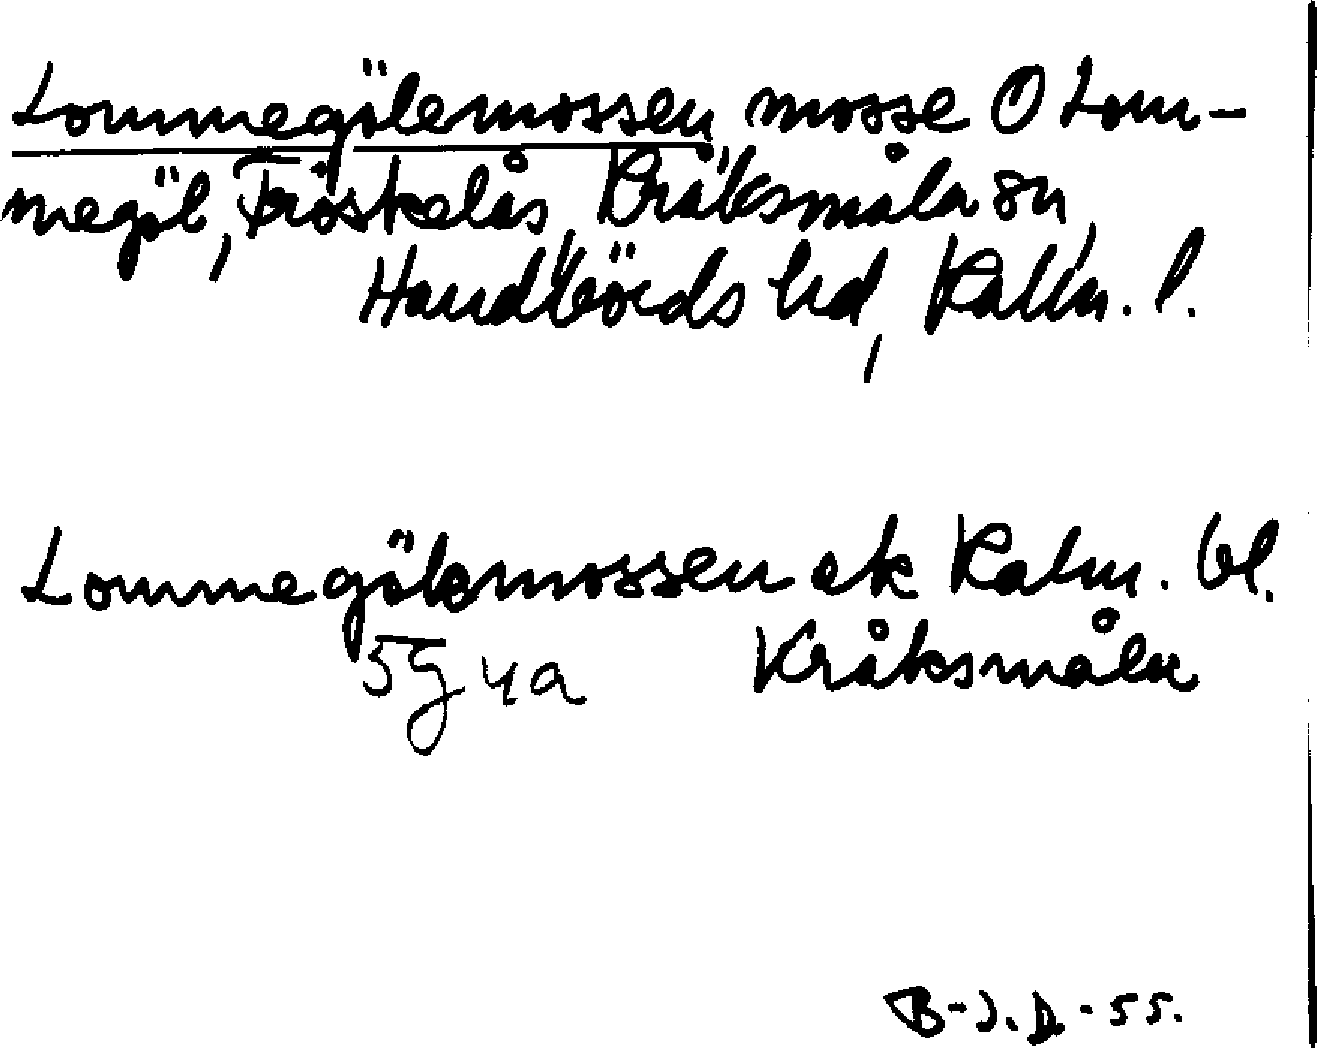 Lommegölemossen mosse O Lom-
megöl, Fröskelås, Kråksmåla sn,
Handbörds hd, Kalm. l.
Lommegölemossen ek Kalm. bl.
5G 4a Kråksmåla
B-J.D-55.